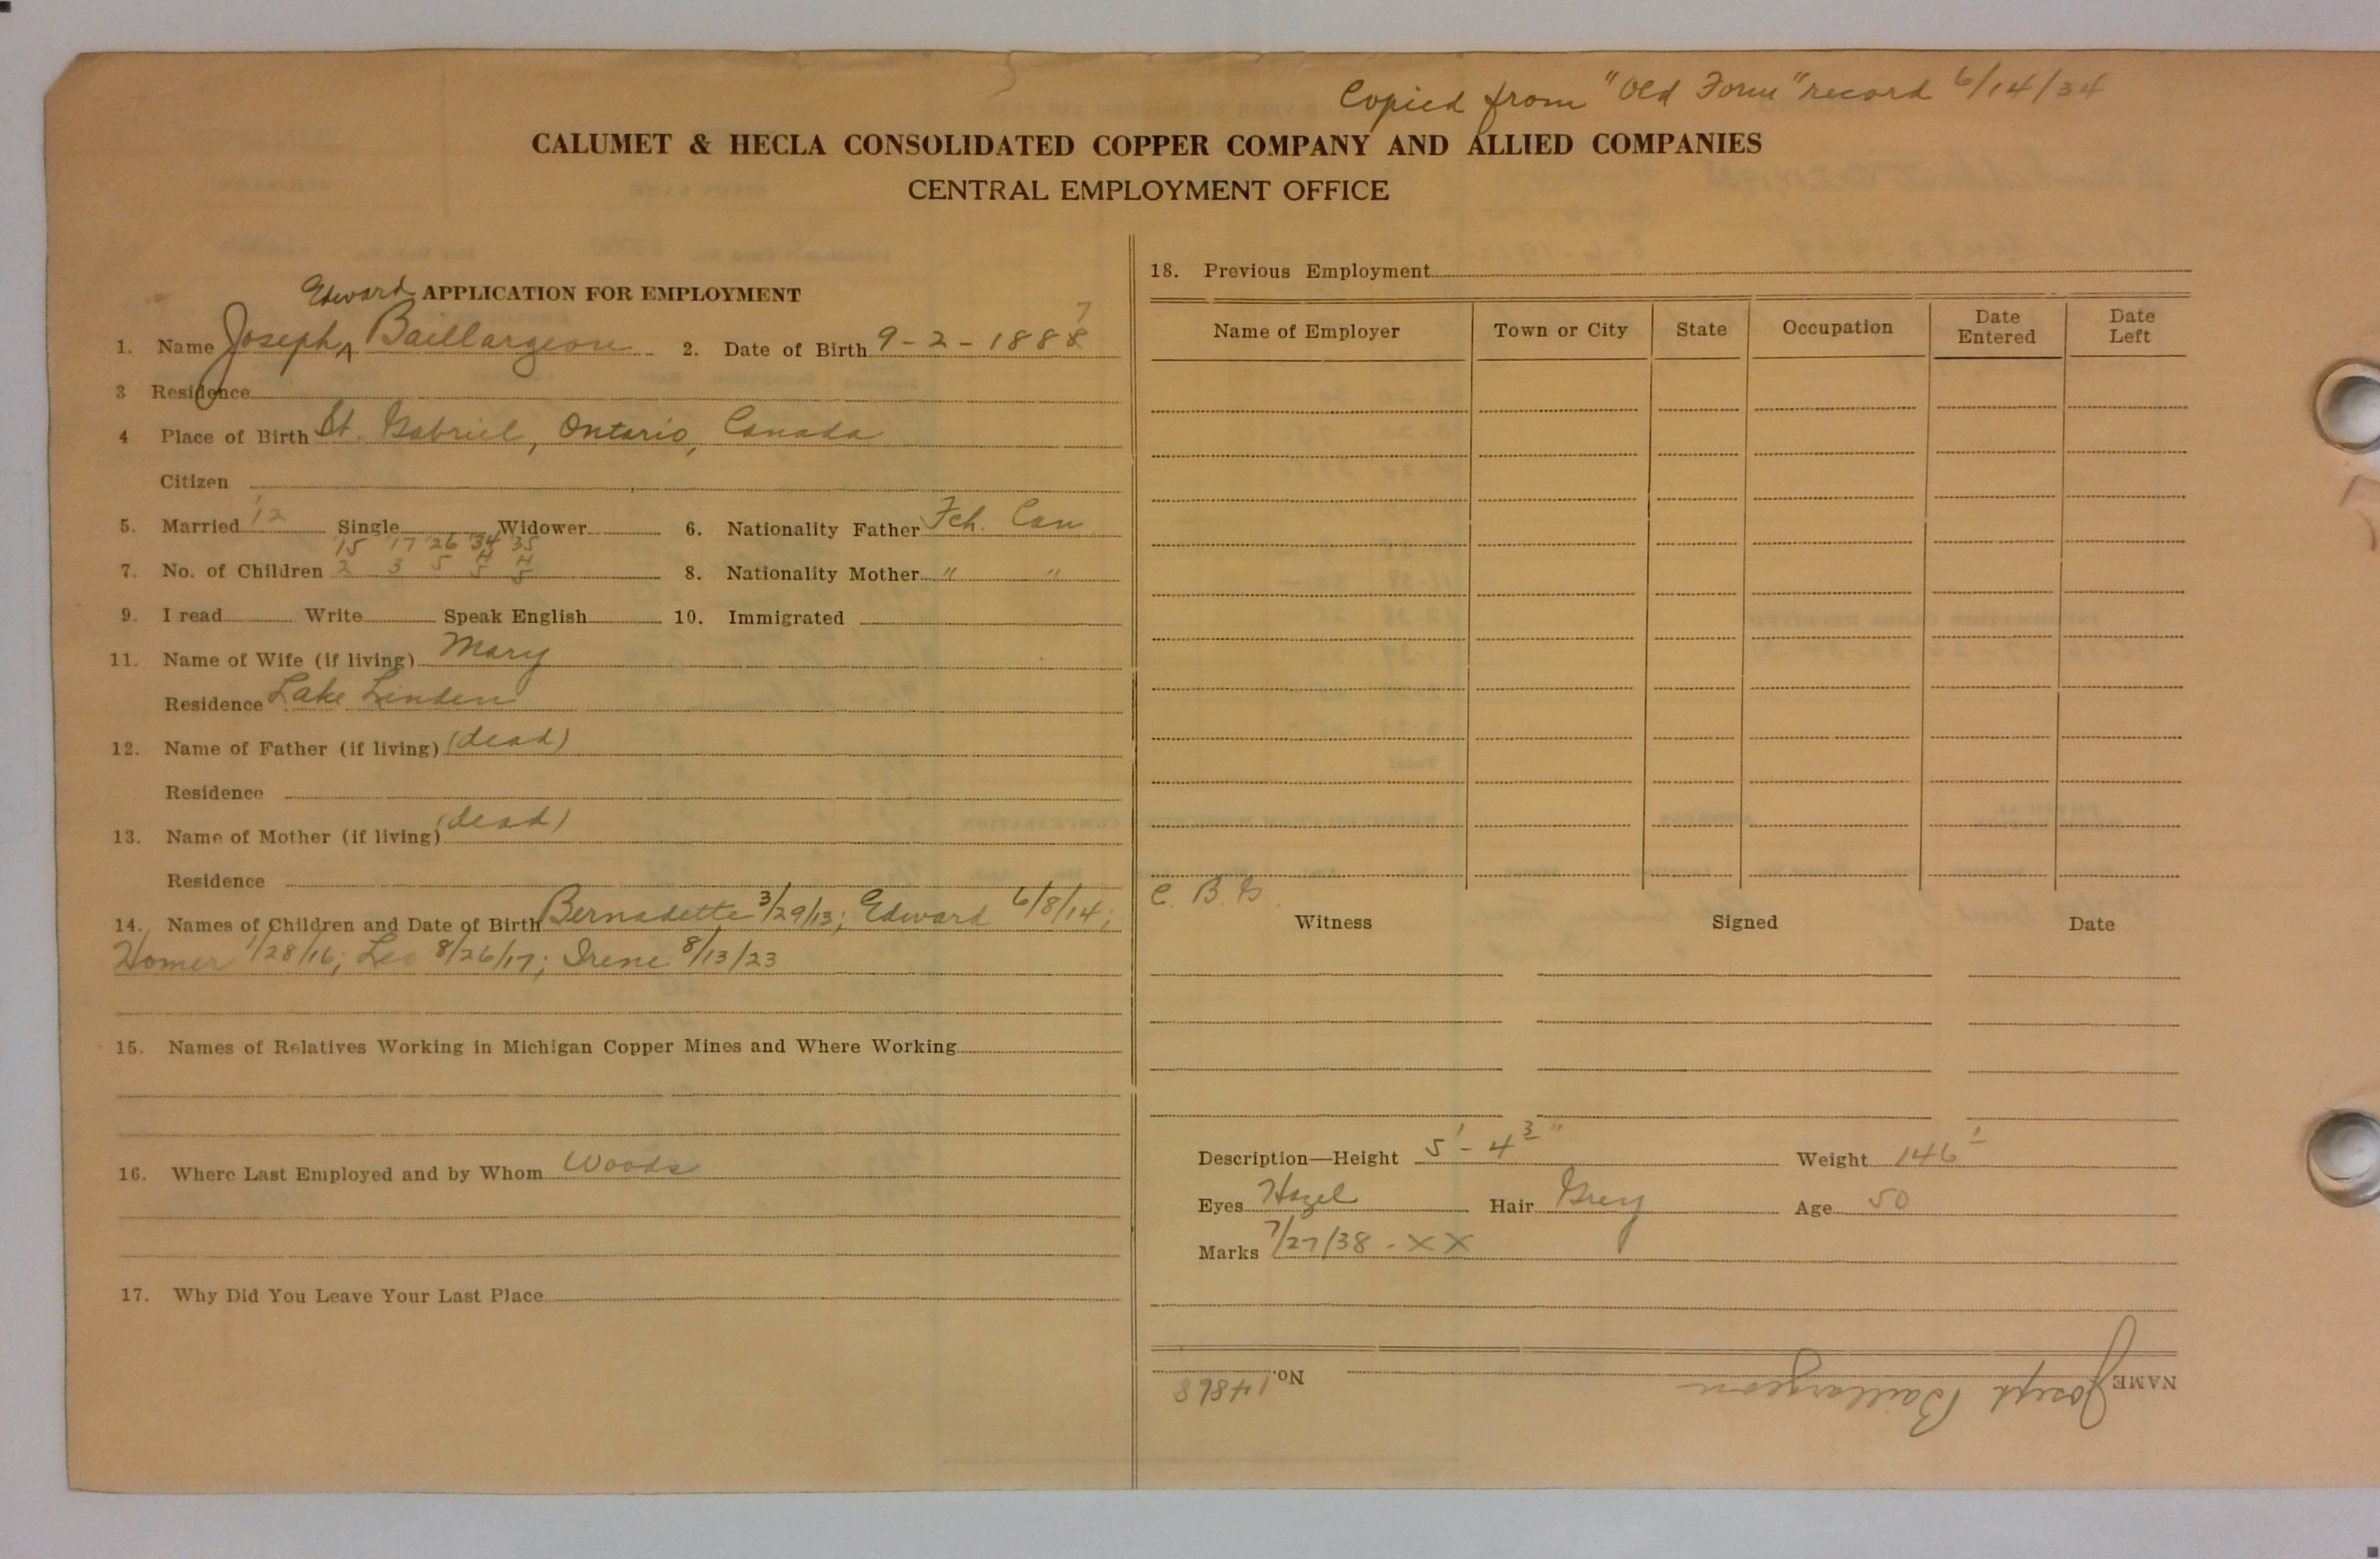 Copied from "Old Form" record 6/14/34
CALUMET & HECLA CONSOLIDATED COPPER COMPANY AND ALLIED COMPANIES
CENTRAL EMPLOYMENT OFFICE
APPLICATION FOR EMPLOYMENT
Edward
1. Name Joseph ^ Baillargeon 2. Date of Birth 9-2-1888 7
3 Residence
4 Place of Birth St. Gabriel, Ontario, Canada
Citizen
5. Married '12 Single Widower 6. Nationality Father Fch. Can
'15 '17 '26 '34 '35
7. No. of Children 2 3 5 H 5 H 5 8. Nationality Mother " "
9. I read Write Speak English 10. Immigrated
11. Name of Wife (if living) Mary
Residence Lake Linden
12. Name of Father (if living) (dead)
Residence
13. Name of Mother (if living) (dead)
Residence
14. Names of Children and Date of Birth Bernadette 3/29/13; Edward 6/8/14;
Homer 1/28/16; Leo 8/26/17; Irene 8/13/23
15. Names of Relatives Working in Michigan Copper Mines and Where Working
16. Where Last Employed and by Whom Woods
17. Why Did You Leave Your Last Place
18. Previous Employment
Name of Employer Town or City State Occupation Date Entered Date Left
C. B. G.
Witness Signed Date
Description—Height 5' - 4 3" Weight 146
Eyes Hazel Hair Grey Age 50
Marks 7/27/38 - XX
NAME Joseph Baillargeon No. 14868